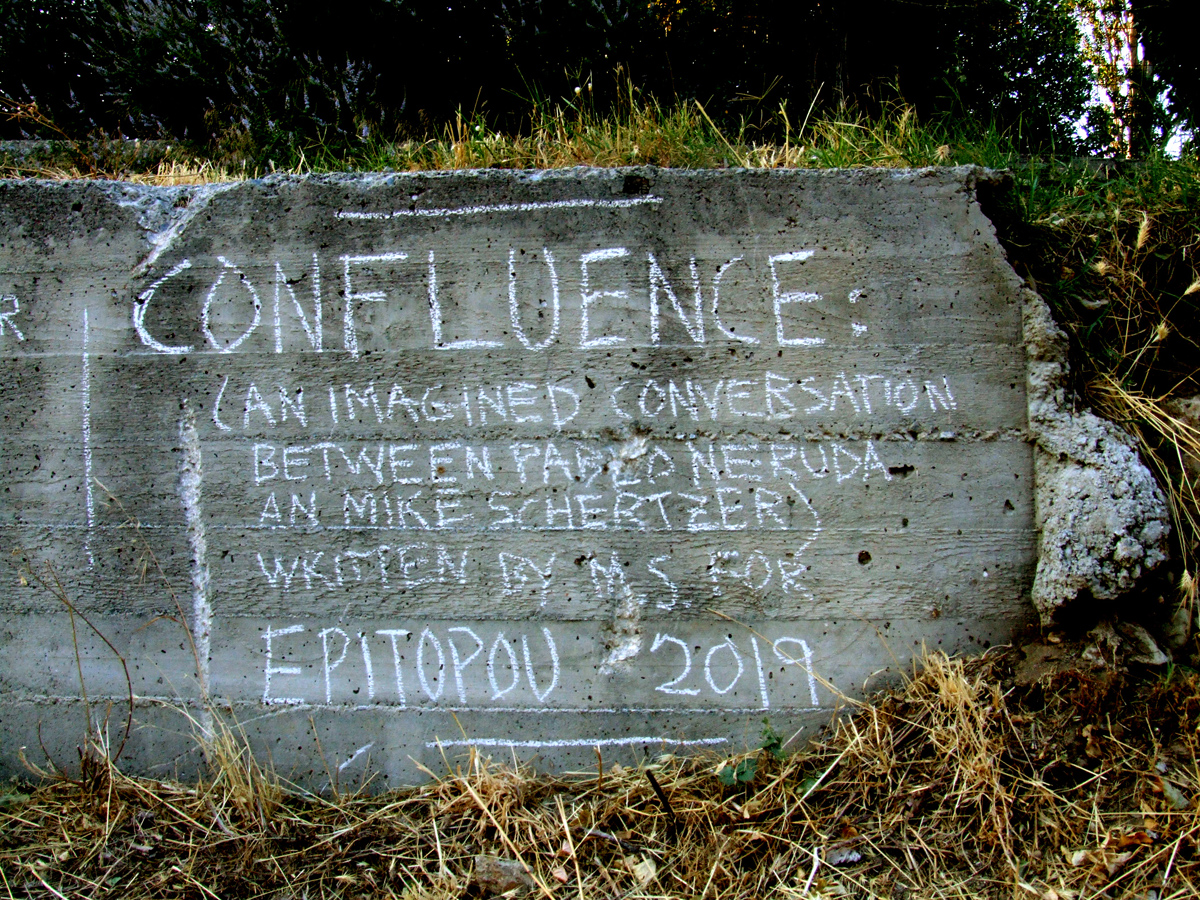 R
CONFLUENCE:
(AN IMAGINED CONVERSATION
BETWEEN PABLO NERUDA
AN MIKE SCHERTZER)
WRITTEN BY M.S. FOR
EPITOPOU 2019